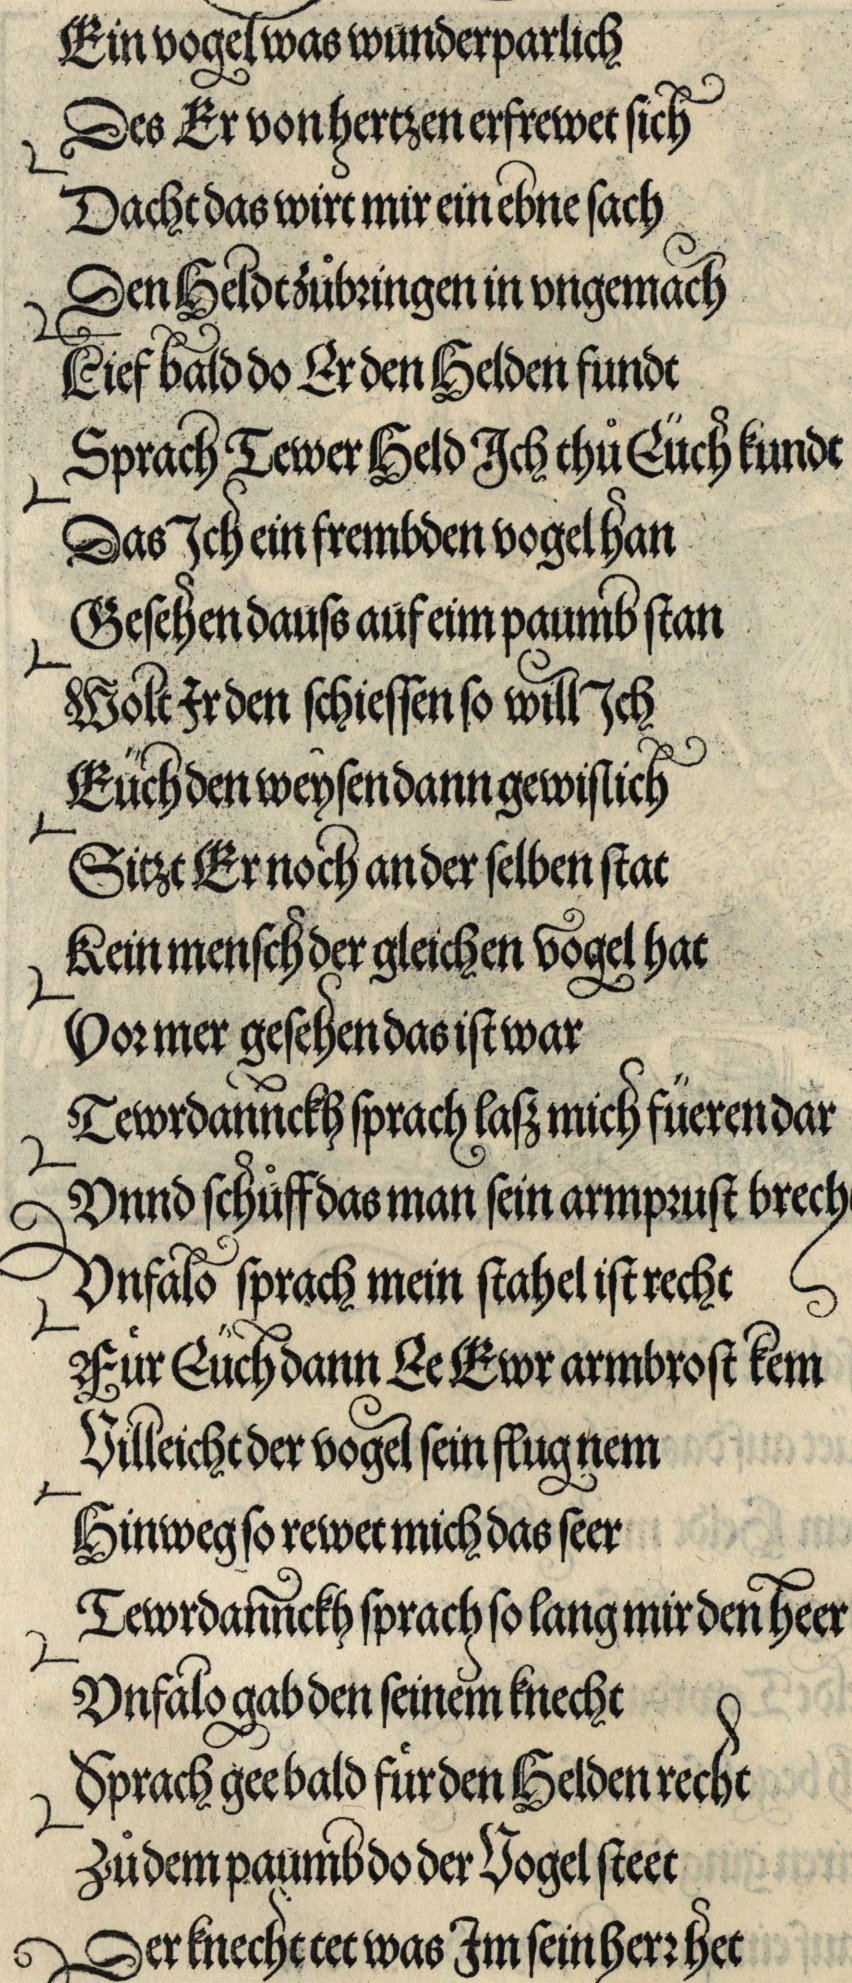 Ein vogel was wunderparlich
Des Er von hertzen erfrewet sich
Dacht das wirt mir ein ebne sach
Den Heldt zůbringen in vngemach
Lief bald do Er den Helden fundt
Sprach Tewer Held Ich thů Eüch kundt
Das Ich ein frembden vogel han
Gesehen dauss auf eim paumb stan
Wolt Ir den schiessen so will Ich
Eüch den weysen dann gewislich
Sitzt Er noch an der selben stat
Kein mensch der gleichen vogel hat
Vor mer gesehen das ist war
Tewrdannckh sprach lasz mich füeren dar
Vnnd schůff das man sein armprust brech
Vnfalo sprach mein stahel ist recht
Für Eüch dann Ee Ewr armbrost kem
Villeicht der vogel sein flug nem
Hinweg so rewet mich das seer
Tewrdannckh sprach so lang mir den heer
Vnfalo gab den seinem knecht
Sprach gee bald für den Helden recht
Zů dem paumb do der Vogel steet
Der knecht tet was Im sein herr het